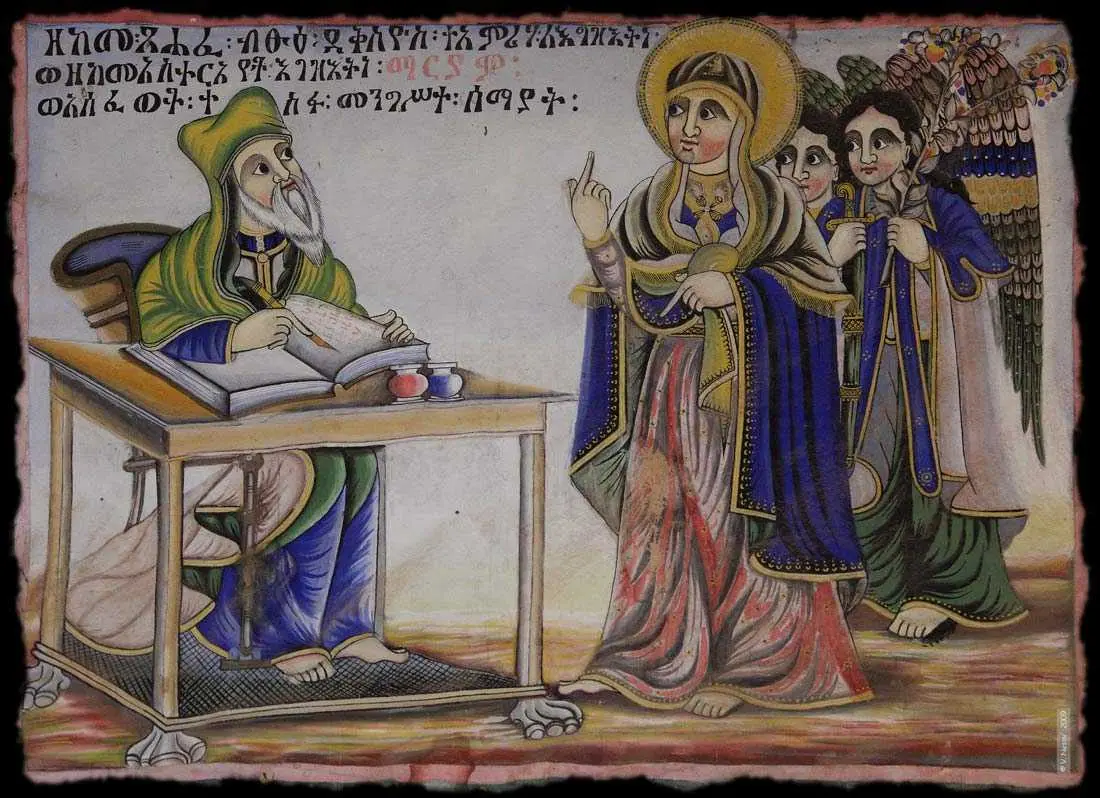 ዘከመ፡ጸሐፈ፡ብፁዕ፡ደቅስዮስ፡ተአምሪሃ፡ለእግዝእትነ፡
ወዘከመ አስተርአየቶ፡እግዝእትነ፡ማርያም፡
ወአሰፈወቶ፡ተ ስፋ፡መንግሥተ፡ሰማያት፡
2009